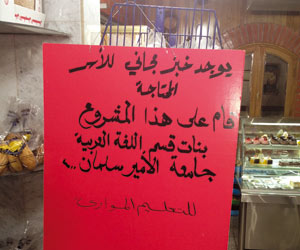 يوجد خبز مجاني للأسر
المحتاجة
قام على هذا المشروع
بنات قسم اللغة العربية
جامعة الأمير سلمان ..
للتعليم الموازي